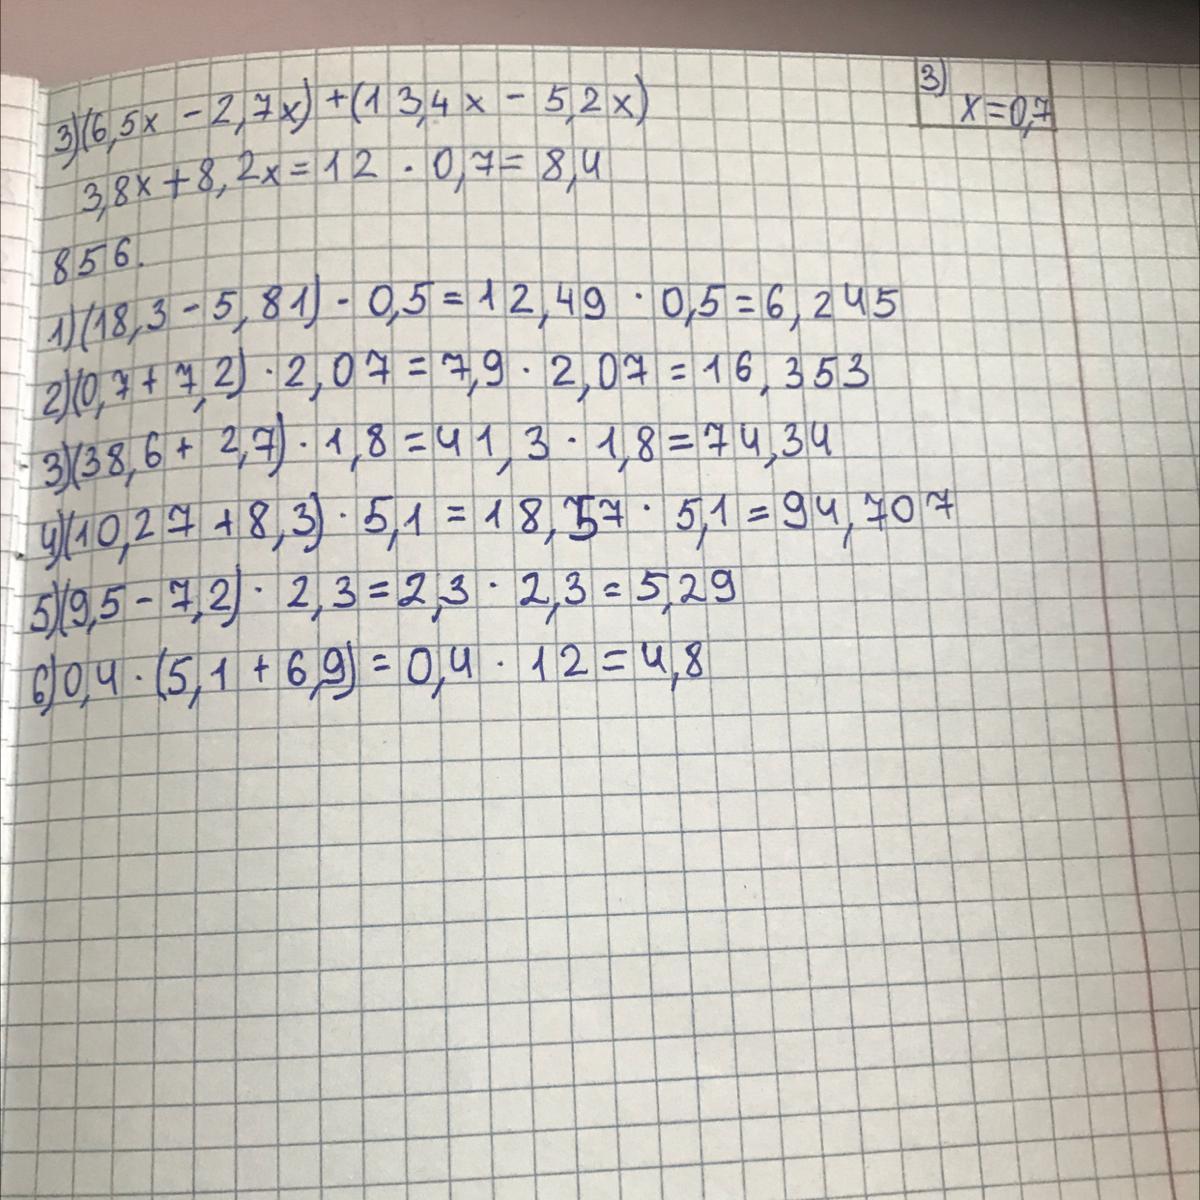 3)(6,5x - 2,7x) + (13,4x - 5,2x)
3) x = 0,7
3,8x + 8,2x = 12 · 0,7 = 8,4
856.
1)(18,3 - 5,81) · 0,5 = 12,49 · 0,5 = 6,245
2)(0,7 + 7,2) · 2,07 = 7,9 · 2,07 = 16,353
3)(38,6 + 2,7) · 1,8 = 41,3 · 1,8 = 74,34
4)(10,27 + 8,3) · 5,1 = 18,57 · 5,1 = 94,707
5)(9,5 - 7,2) · 2,3 = 2,3 · 2,3 = 5,29
6)0,4 · (5,1 + 6,9) = 0,4 · 12 = 4,8